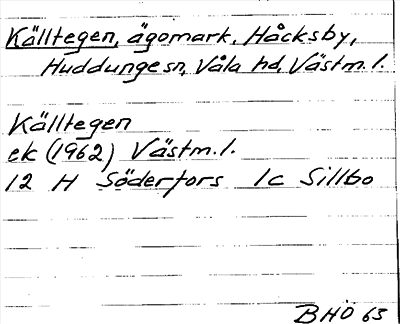 Källtegen, ägomark, Håcksby,
Huddunge sn, Våla hd, Västm. l.
Källtegen
ek (1962) Västm. l.
12 H Söderfors 1c Sillbo
BHÖ 63